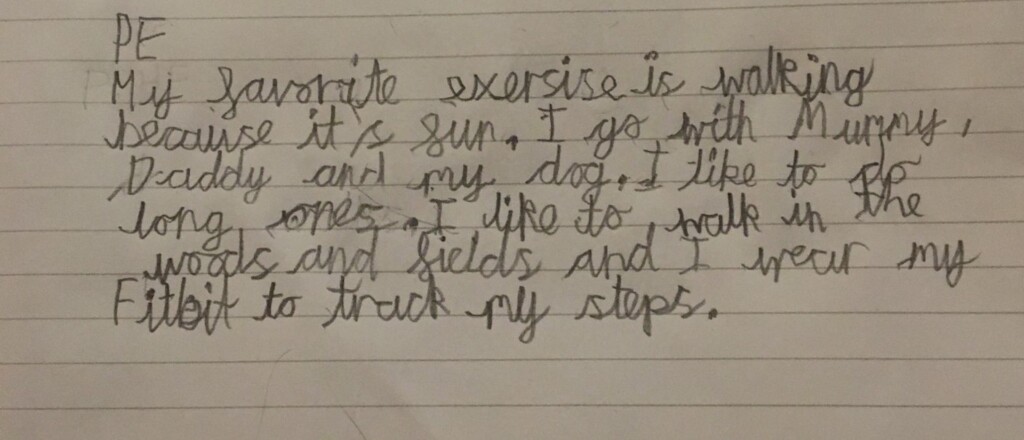 PE
My favorite exersise is walking
because it's fun. I go with Mummy,
Daddy and my dog. I like to do
long ones. I like to walk in the
woods and fields and I wear my
Fitbit to track my steps.